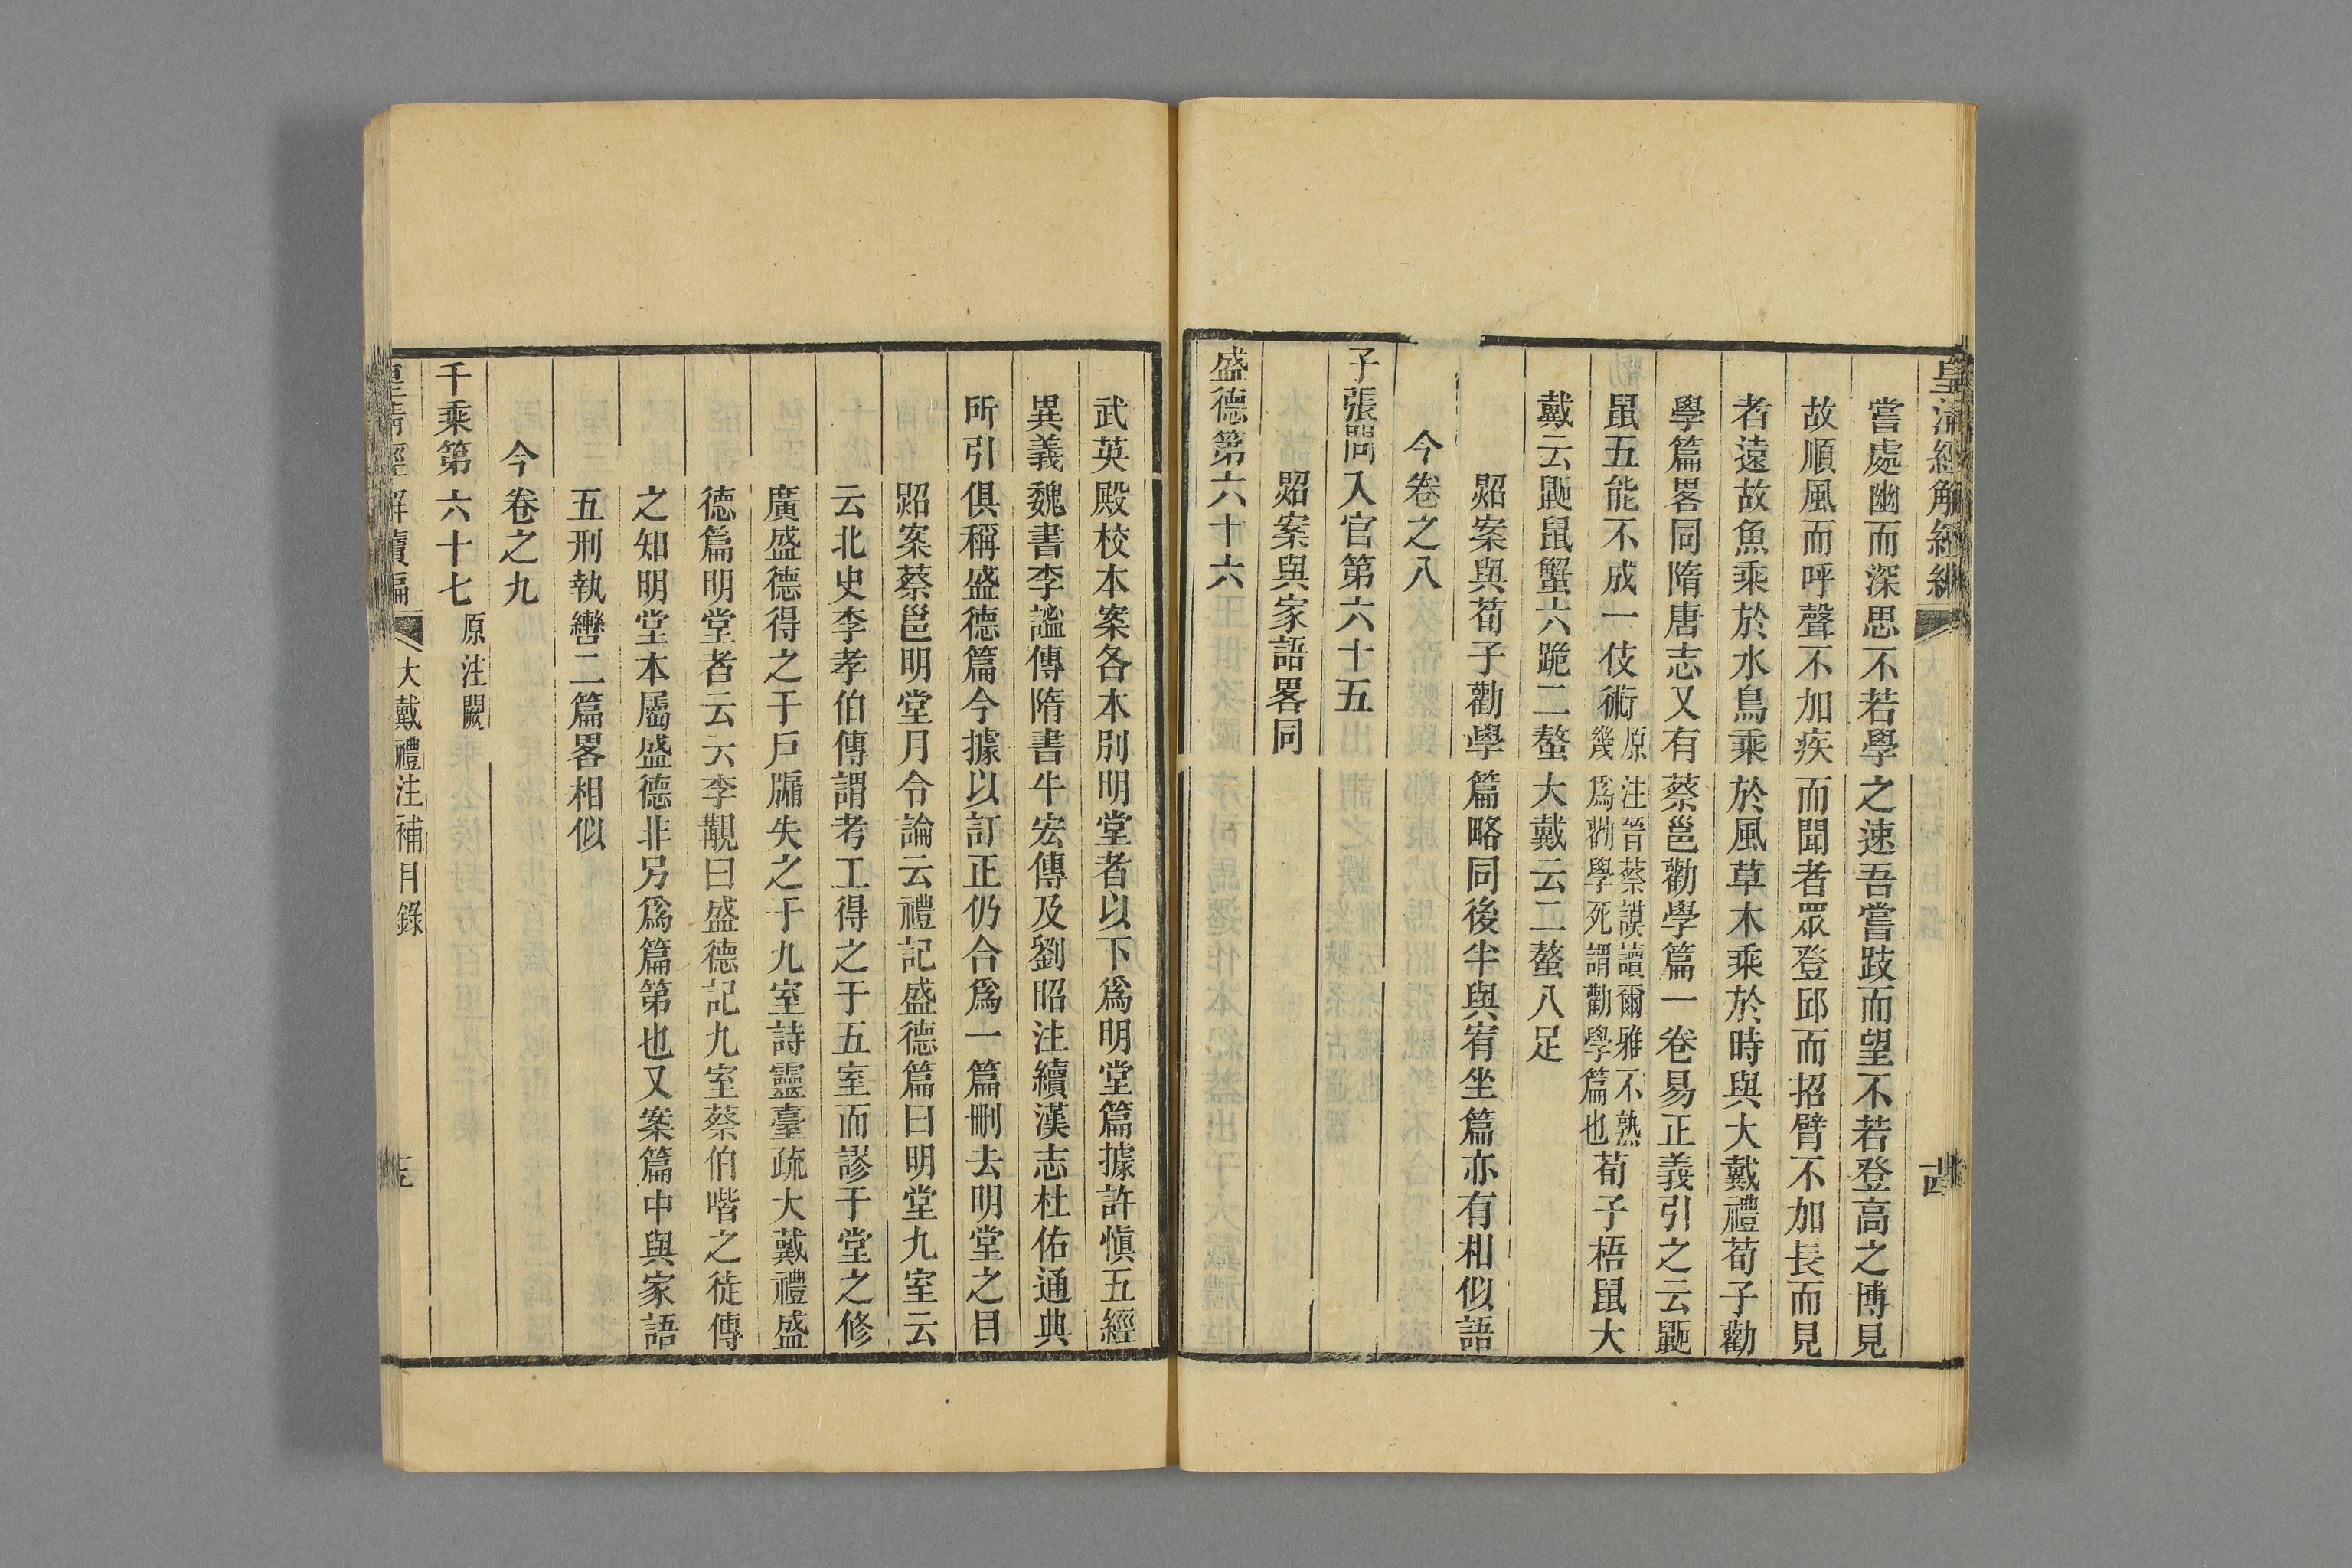 皇清經解續編
嘗處幽而深思不若學之速吾嘗跂而望不若登高之博見
故順風而呼聲不加疾而聞者眾登邱而招臂不加長而見
者遠故魚乘於水鳥乘於風草木乘於時與大戴禮荀子勸
學篇畧同隋唐志又有蔡邕勸學篇一卷易正義引之云鼫
鼠五能不成一伎術原注晉蔡謨讀爾雅不熟幾爲勸學死謂勸學篇也荀子梧鼠大
戴云鼫鼠蟹六跪二螯大戴云二螯八足
炤案與荀子勸學篇略同後半與宥坐篇亦有相似語
今卷之八
子張問入官第六十五
炤案與家語畧同
盛德第六十六
武英殿校本案各本別明堂者以下爲明堂篇據許愼五經
異義魏書李謐傳隋書牛宏傳及劉昭注續漢志杜佑通典
所引俱稱盛德篇今據以訂正仍合爲一篇刪去明堂之目
炤案蔡邕明堂月令論云禮記盛德篇曰明堂九室云
云北史李孝伯傳謂考工得之于五室而謬于堂之修
廣盛德得之于戶牖失之于九室詩靈臺疏大戴禮盛
德篇明堂者云云李覯曰盛德記九室蔡伯喈之徒傳
之知明堂本屬盛德非另爲篇第也又案篇中與家語
五刑執轡二篇畧相似
今卷之九
千乘第六十七原注闕
皇清經解續編 大戴禮注補目錄